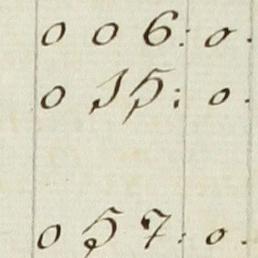 0 0 6: 0.
0 15: 0.
0 57: 0.